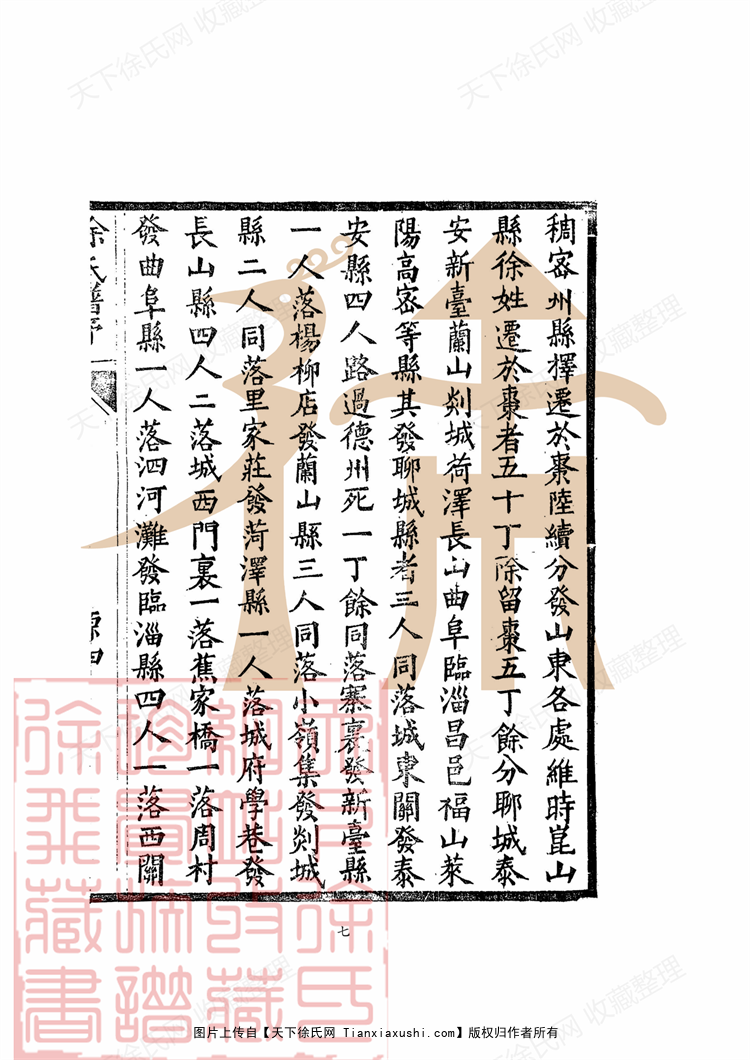 稠密州縣擇遷於棗陸續分發山東各處維時崑山
縣徐姓遷於棗者五十丁除留棗五丁餘分聊城泰
安新臺蘭山剡城荷澤長山曲阜臨淄昌邑福山萊
陽高密等縣其發聊城縣者三人同落城東關發泰
安縣四人路過德州死一丁餘同落寨裏發新臺縣
一人落楊柳店發蘭山縣三人同落小嶺集發剡城
縣二人同落里家莊發菏澤縣一人落城府學巷發
長山縣四人二落城西門裏一落蕉家橋一落周村
發曲阜縣一人落泗河灘發臨淄縣四人一落西關
徐氏譜序
七
图片上传自【天下徐氏网 Tianxiaxushi.com】版权归作者所有
天下徐氏网 收藏整理